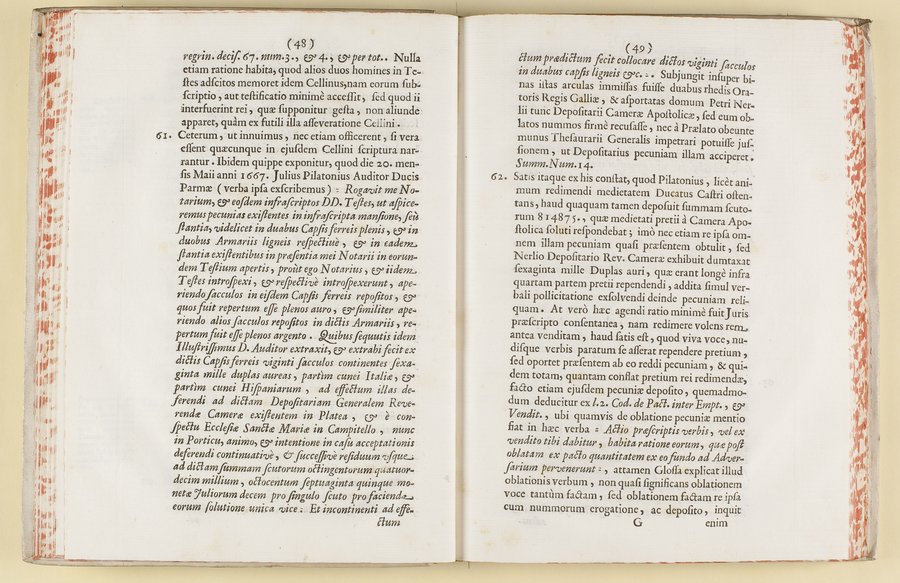 (48)
regrin. decis. 67. num. 3., & 4., & per tot.. Nulla
etiam ratione habita, quod alios duos homines in Te-
stes adscitos memoret idem Cellinus, nam eorum sub-
scriptio, aut testificatio minimè accessit, sed quod ii
interfuerint rei, quæ supponitur gesta, non aliunde
apparet, quàm ex futili illa asseveratione Cellini.
61. Ceterum, ut innuimus, nec etiam officerent, si vera
essent quæcunque in ejusdem Cellini scriptura nar-
rantur. Ibidem quippe exponitur, quod die 20. men-
sis Maii anni 1667. Julius Pilatonius Auditor Ducis
Parmæ (verba ipsa exscribemus) = Rogavit me No-
tarium, & eosdem infrascriptos DD. Testes, ut aspice-
remus pecunias existentes in infrascripta mansione, seù
stantia, videlicet in duabus Capsis ferreis plenis, & in
duobus Armariis ligneis respectiuè, & in eadem
stantia existentibus in præsentia mei Notarii in eorun-
dem Testium apertis, proùt ego Notarius, & iidem
Testes introspexi, & respectivè introspexerunt, ape-
riendo sacculos in eisdem Capsis ferreis repositos, &
quos fuit repertum esse plenos auro, & similiter ape-
riendo alios sacculos repositos in dictis Armariis, re-
pertum fuit esse plenos argento. Quibus sequutis idem
Illustrissimus D. Auditor extraxit, & extrahi fecit ex
dictis Capsis ferreis viginti sacculos continentes sexa-
ginta mille duplas aureas, partim cunei Italiæ, &
partim cunei Hispaniarum, ad effectum illas de-
ferendi ad dictam Depositariam Generalem Reve-
rendæ Cameræ existentem in Platea, & è con-
spectu Ecclesiæ Sanctæ Mariæ in Campitello, nunc
in Porticu, animo, & intentione in casu acceptationis
deferendi continuativè, & successivè residuum usque
ad dictam summam scutorum octingentorum quatuor-
decim millium, octocentum septuaginta quinque mo-
netæ Juliorum decem pro singulo scuto pro facienda
eorum solutione unica vice: Et incontinenti ad effe-
ctum
(49)
ctum prædictum fecit collocare dictos viginti sacculos
in duabus capsis ligneis &c. =. Subjungit insuper bi-
nas istas arculas immissas fuisse duabus rhedis Ora-
toris Regis Galliæ, & asportatas domum Petri Ner-
lii tunc Depositarii Cameræ Apostolicæ, sed eum ob-
latos nummos firmè recusasse, nec à Prælato obeunte
munus Thesaurarii Generalis impetrari potuisse jus-
sionem, ut Depositarius pecuniam illam acciperet.
Summ. Num. 14.
62. Satis itaque ex his constat, quod Pilatonius, licèt ani-
mum redimendi medietatem Ducatus Castri osten-
tans, haud quaquam tamen deposuit summam scuto-
rum 814875., quæ medietati pretii à Camera Apo-
stolica soluti respondebat; imò nec etiam re ipsa om-
nem illam pecuniam quasi præsentem obtulit, sed
Nerlio Depositario Rev. Cameræ exhibuit dumtaxat
sexaginta mille Duplas auri, quæ erant longè infra
quartam partem pretii rependendi, addita simul ver-
bali pollicitatione exsolvendi deinde pecuniam reli-
quam. At verò hæc agendi ratio minimè fuit Juris
præscripto consentanea, nam redimere volens rem
antea venditam, haud satis est, quod viva voce, nu-
disque verbis paratum se asserat rependere pretium,
sed oportet præsentem ab eo reddi pecuniam, & qui-
dem totam, quantam constat pretium rei redimendæ,
facto etiam ejusdem pecuniæ deposito, quemadmo-
dum deducitur ex l. 2. Cod. de Pact. inter Empt., &
Vendit., ubi quamvis de oblatione pecuniæ mentio
fiat in hæc verba = Actio præscriptis verbis, vel ex
vendito tibi dabitur, habita ratione eorum, quæ post
oblatam ex pacto quantitatem ex eo fundo ad Adver-
sarium pervenerunt =, attamen Glossa explicat illud
oblationis verbum, non quasi significans oblationem
voce tantùm factam, sed oblationem factam re ipsa
cum nummorum erogatione, ac deposito, inquit
G enim